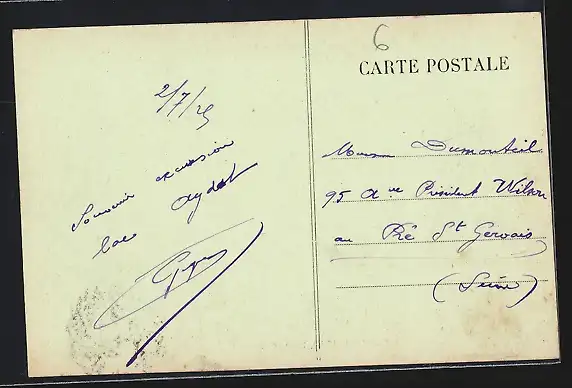 6
CARTE POSTALE
2/7/25
Souvenir excursion
lac aydat
Dumonteil
95 Ave Président Wilson
au Pré St Gervais
(Seine)